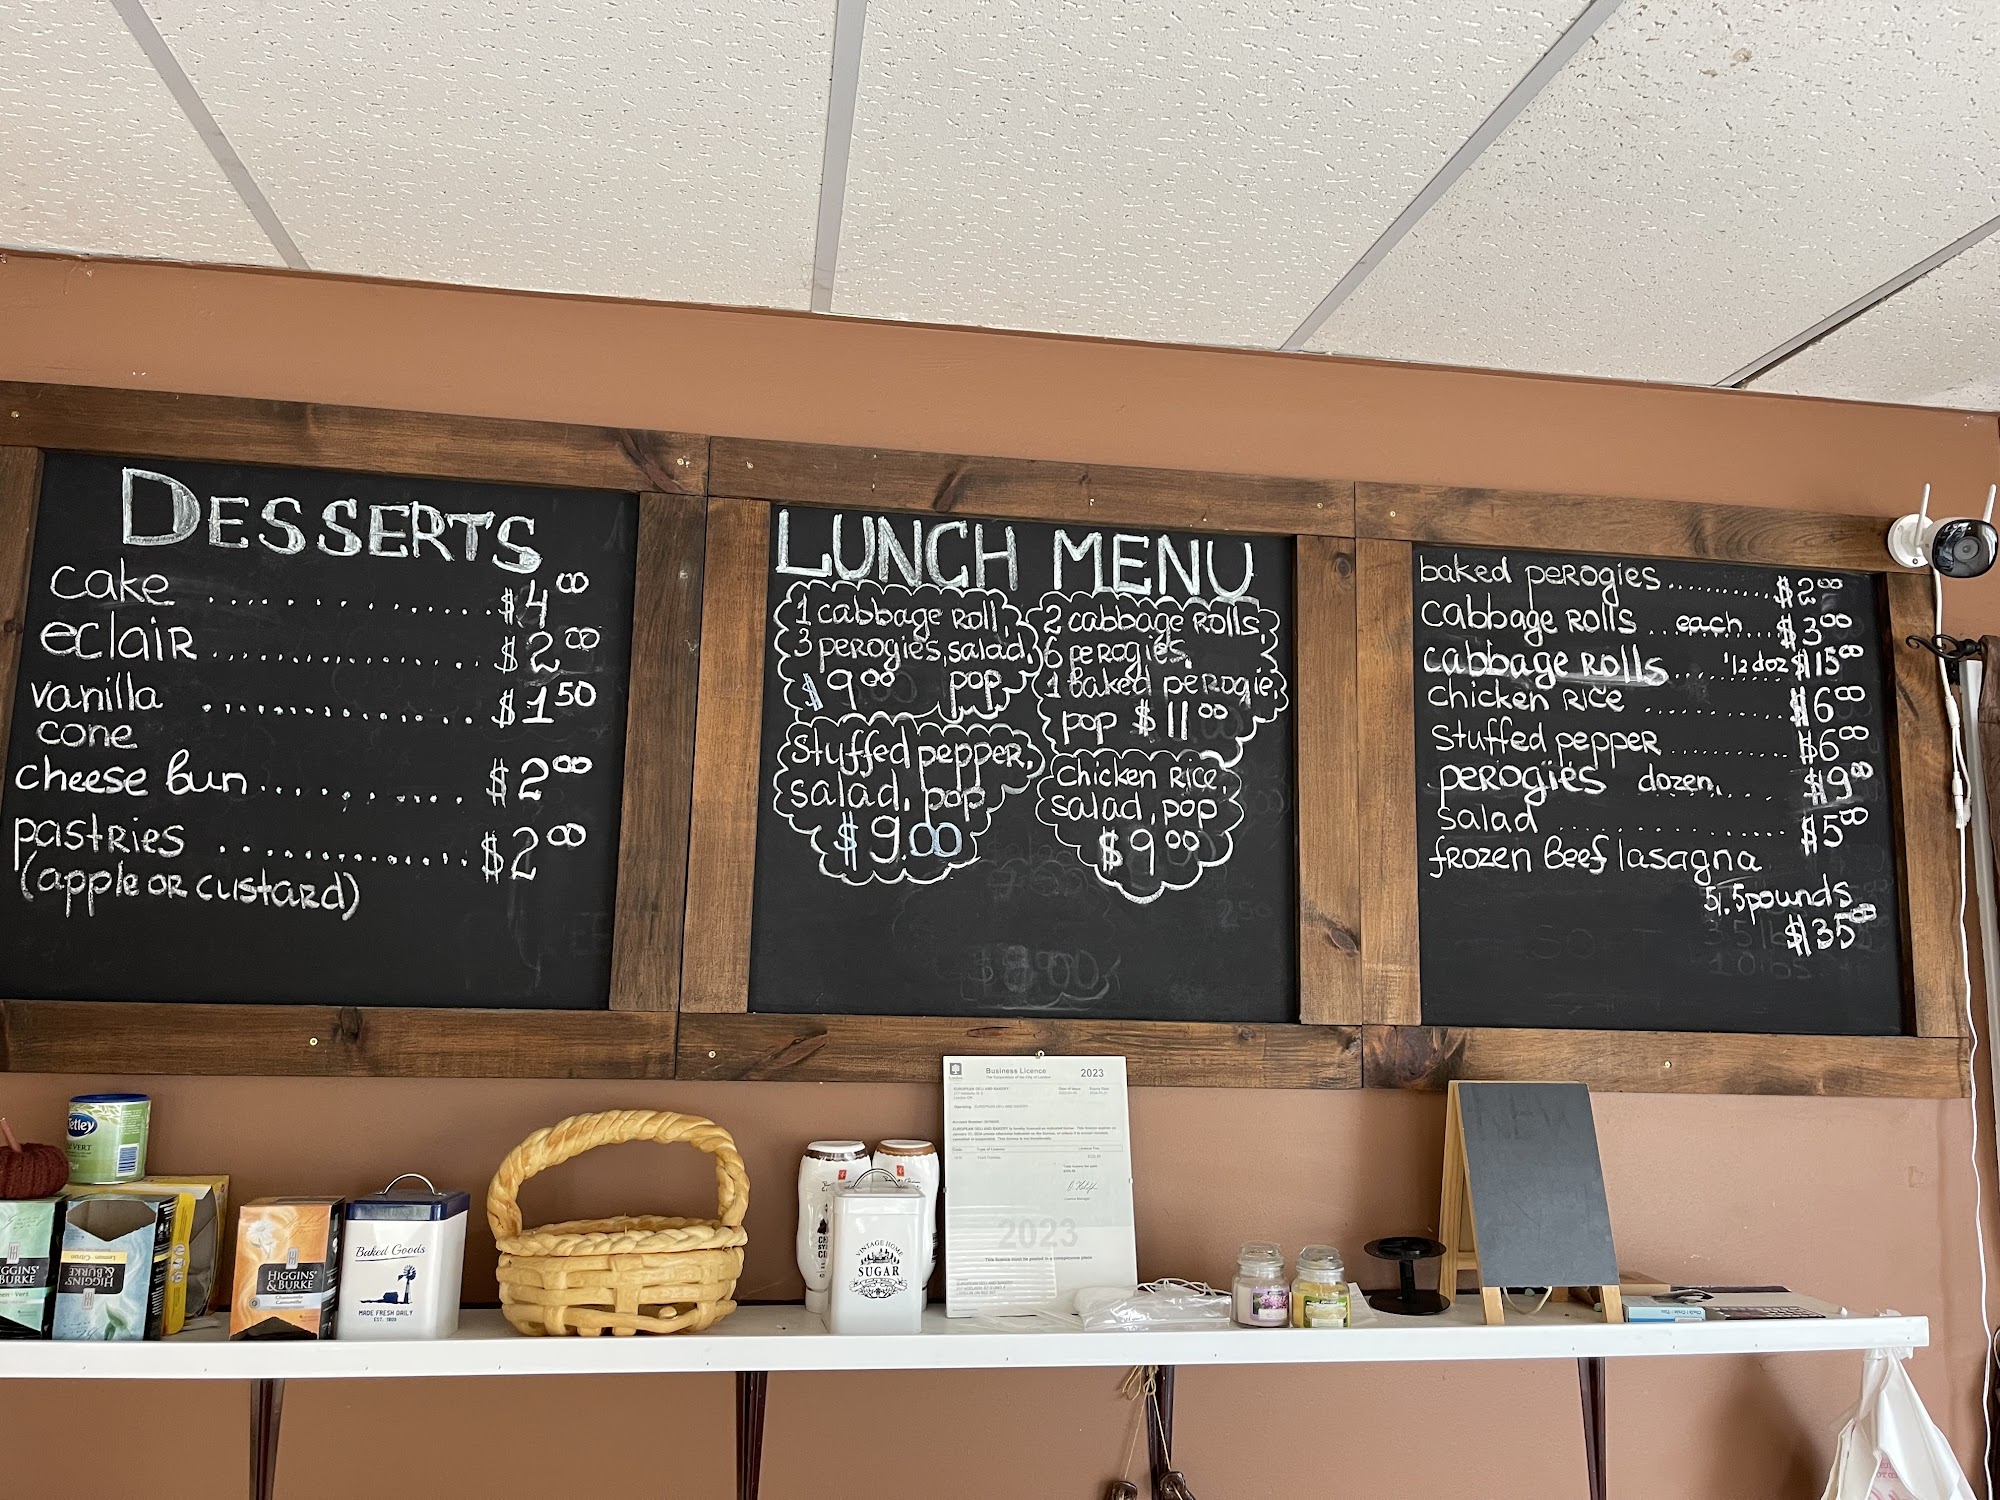 DESSERTS
cake ................ $4.00
eclair .................... $2.00
vanilla ................... $1.50
cone
cheese bun ............ $2.00
pastries ................. $2.00
(apple or custard)
LUNCH MENU
1 cabbage roll,
3 perogies, salad,
$9.00 pop
2 cabbage rolls,
6 perogies,
1 baked perogie,
pop $11.00
stuffed pepper,
salad, pop
$9.00
chicken rice,
salad, pop
$9.00
baked perogies ............
cabbage rolls ... each .... $3.00
cabbage rolls 1/2 doz $15.00
chicken rice ............... $6.00
stuffed pepper ............. $6.00
perogies dozen, .... $9.00
salad ..................... $5.00
frozen beef lasagna
5.5 pounds
$35.00
Tetley
HIGGINS'
& BURKE
Lemon-Citron
HIGGINS
& BURKE
HIGGINS'
& BURKE
Chamomile
Camomille
Baked Goods
MADE FRESH DAILY
VINTAGE HOME
SUGAR
Business Licence 2023
The Corporation of the City of London
EUROPEAN DELI AND BAKERY
2023
This licence must be posted in a conspicuous place